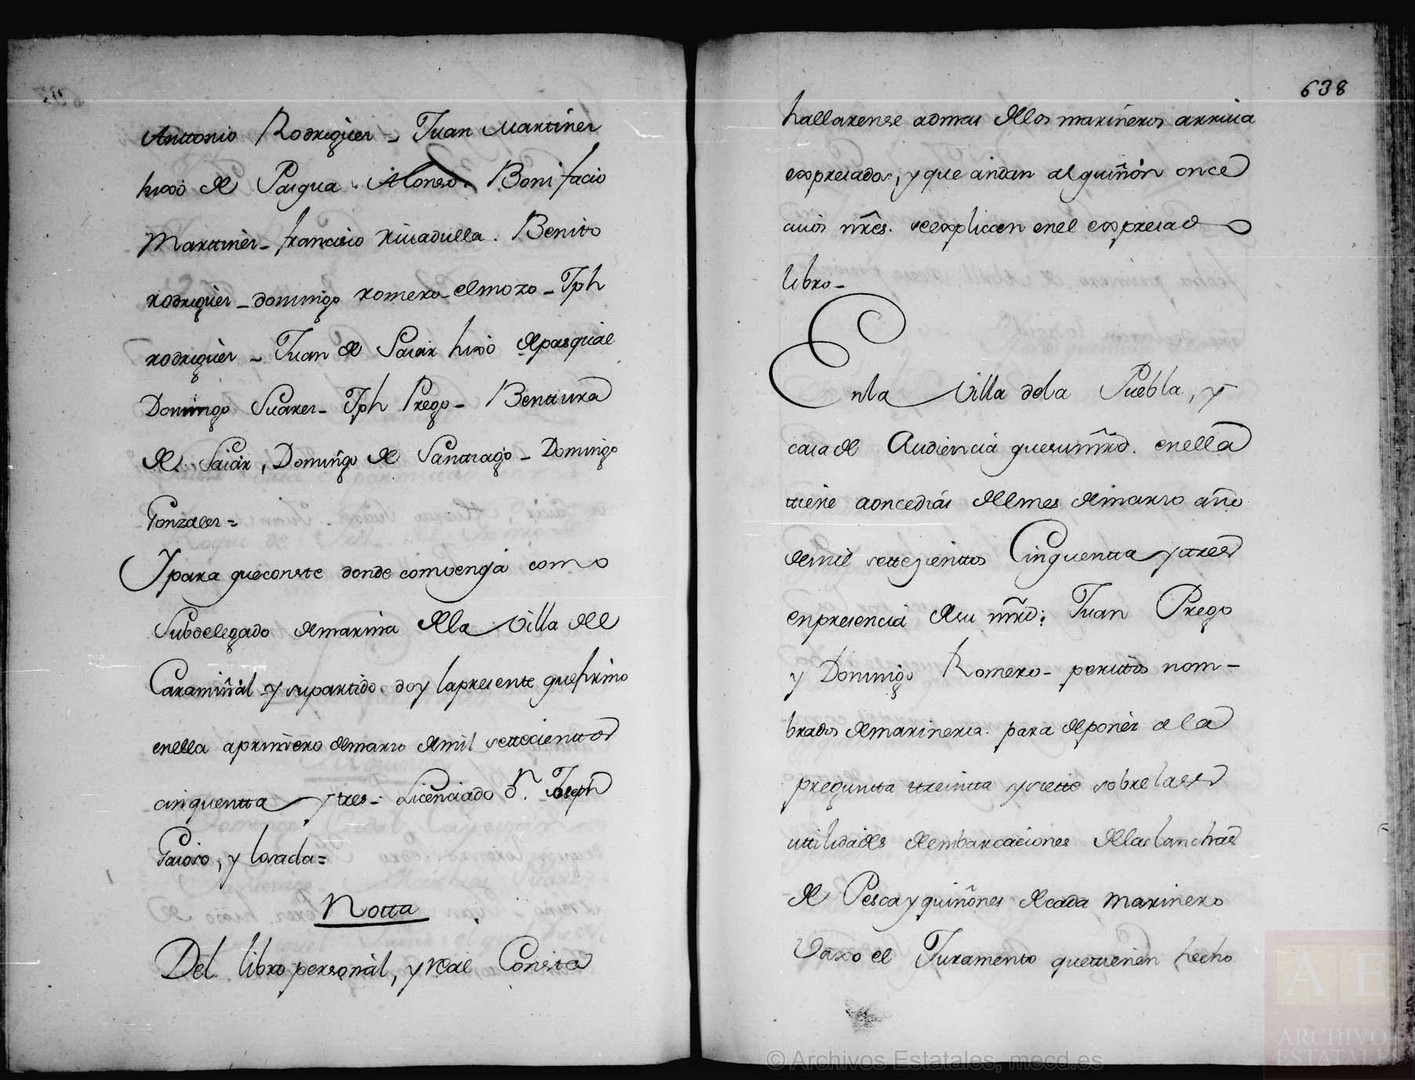 Anttonio Rodriguez - Juan Martinez
hixo de Pasqua. Alonso. Bonifacio
Marttinez - francisco Rivadulla. Benito
rodriguez - domingo romero - elmozo - Jph
rodriguez - Juan de Saiar hixo depasqual
Domingo Suarez - Jph Prego - Benttura
de Saiar, Domingo de Santtiago - Domingo
Gonzalez =
Ypara queconste donde comvenga como
Subdelegado demarina dela Villa del
Caramiñal y supartido. doy lapresente quefirmo
enella aprimero demarzo demil settecienttos
cinquentta y tres - Licenciado Dn. Joseph
Gaioso, y losada =
Notta
Del libro personal, y real Consta
638
hallarense admas delos marineros arriva
expresados, y que andan al quiñon once
cuios nres. seexplican enel expresado
libro -
Enla Villa dela Puebla, y
casa de Audiencia quesumrd. enella
ttiene aoncedias delmes demarzo año
demil settezientos Cinquentta ytres
enpresencia desu mrd; Juan Prego
y Domingo Romero - perittos nom-
brados demarineria. para deponer ala
pregunta ttreintta ysiette sobre las
uttilidades deembarcaciones delas lanchas
de Pesca y quiñones decada marinero
Vaxo el Juramento quettienen hecho
© Archivos Estatales, mecd.es
AE
ARCHIVOS
ESTATALES